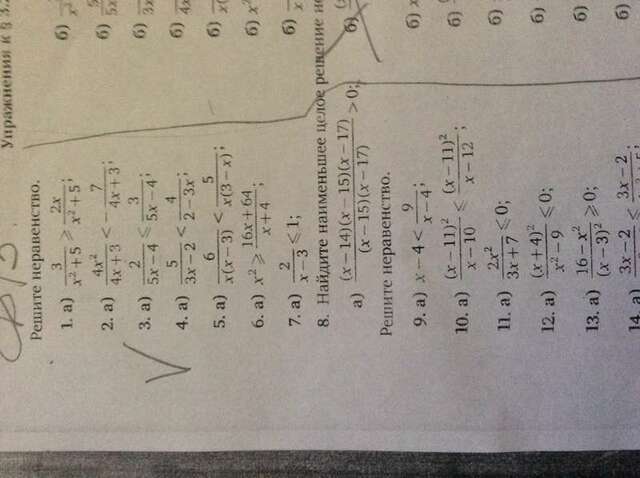 Упражнения к § 3.
Решите неравенство.
1. а) 3/(x² + 5) ⩾ 2x/(x² + 5); б)
2. а) 4x²/(4x + 3) < − 7/(4x + 3); б)
3. а) 2/(5x − 4) ⩽ 3/(5x − 4); б)
4. а) 5/(3x − 2) < 4/(2 − 3x); б)
5. а) 6/(x(x − 3)) < 5/(x(3 − x)); б)
6. а) x² ⩾ (16x + 64)/(x + 4); б) x²
7. а) 2/(x − 3) ⩽ 1; б)
8. Найдите наименьшее целое решение
а) (x − 14)(x − 15)(x − 17)/((x − 15)(x − 17)) > 0; б)
Решите неравенство.
9. а) x − 4 < 9/(x − 4); б) x
10. а) (x − 11)²/(x − 10) ⩽ (x − 11)²/(x − 12); б)
11. а) 2x²/(3x + 7) ⩽ 0; б)
12. а) (x + 4)²/(x² − 9) ⩽ 0; б)
13. а) (16 − x²)/(x − 3)² ⩾ 0; б)
14. а) 3x − 2 ⩽ 3x − 2 б)